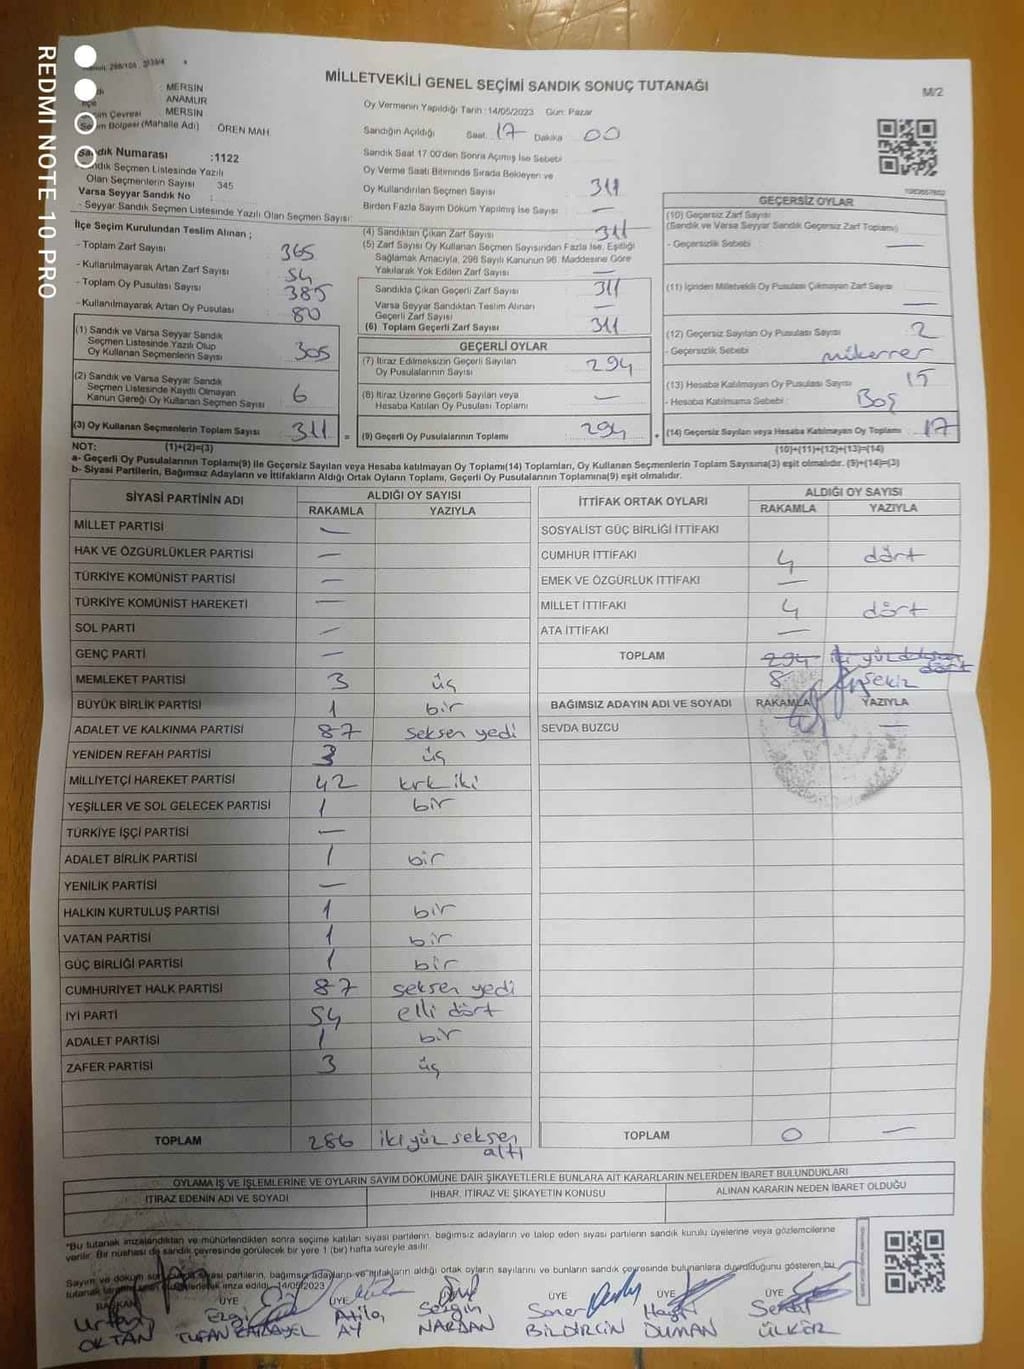 REDMI NOTE 10 PRO
MİLLETVEKİLİ GENEL SEÇİMİ SANDIK SONUÇ TUTANAĞI
M/2
: MERSİN
: ANAMUR
Seçim Çevresi : MERSİN
Seçim Bölgesi (Mahalle Adı) : ÖREN MAH
Sandık Numarası :1122
Sandık Seçmen Listesinde Yazılı
Olan Seçmenlerin Sayısı 345
Varsa Seyyar Sandık No :
- Seyyar Sandık Seçmen Listesinde Yazılı Olan Seçmen Sayısı:
Oy Vermenin Yapıldığı Tarih :14/05/2023 Gün: Pazar
Sandığın Açıldığı Saat: 17 Dakika 00
Sandık Saat 17:00'den Sonra Açılmış İse Sebebi
Oy Verme Saati Bitiminde Sırada Bekleyen ve
Oy Kullandırılan Seçmen Sayısı 311
Birden Fazla Sayım Döküm Yapılmış İse Sayısı —
İlçe Seçim Kurulundan Teslim Alınan ;
- Toplam Zarf Sayısı 365
- Kullanılmayarak Artan Zarf Sayısı 54
- Toplam Oy Pusulası Sayısı 385
- Kullanılmayarak Artan Oy Pusulası 80
(1) Sandık ve Varsa Seyyar Sandık
Seçmen Listesinde Yazılı Olup
Oy Kullanan Seçmenlerin Sayısı 305
(2) Sandık ve Varsa Seyyar Sandık
Seçmen Listesinde Kayıtlı Olmayan
Kanun Gereği Oy Kullanan Seçmen Sayısı 6
(3) Oy Kullanan Seçmenlerin Toplam Sayısı 311 =
(4) Sandıktan Çıkan Zarf Sayısı 311
(5) Zarf Sayısı Oy Kullanan Seçmen Sayısından Fazla İse, Eşitliği
Sağlamak Amacıyla, 298 Sayılı Kanunun 98. Maddesine Göre
Yakılarak Yok Edilen Zarf Sayısı —
Sandıkta Çıkan Geçerli Zarf Sayısı 311
Varsa Seyyar Sandıktan Teslim Alınan
Geçerli Zarf Sayısı
(6) Toplam Geçerli Zarf Sayısı 311
GEÇERLİ OYLAR
(7) İtiraz Edilmeksizin Geçerli Sayılan
Oy Pusulalarının Sayısı 294
(8) İtiraz Üzerine Geçerli Sayılan veya
Hesaba Katılan Oy Pusulaları Toplamı —
(9) Geçerli Oy Pusulalarının Toplamı 294 +
GEÇERSİZ OYLAR
(10) Geçersiz Zarf Sayısı
(Sandık ve Varsa Seyyar Sandık Geçersiz Zarf Toplamı)
- Geçersizlik Sebebi : —
(11) İçinden Milletvekili Oy Pusulası Çıkmayan Zarf Sayısı
—
(12) Geçersiz Sayılan Oy Pusulası Sayısı 2
- Geçersizlik Sebebi : mükerrer
(13) Hesaba Katılmayan Oy Pusulası Sayısı 15
- Hesaba Katılmama Sebebi : Boş
(14) Geçersiz Sayılan veya Hesaba Katılmayan Oy Toplamı 17
NOT: (1)+(2)=(3) (10)+(11)+(12)+(13)=(14)
a- Geçerli Oy Pusulalarının Toplamı(9) ile Geçersiz Sayılan veya Hesaba katılmayan Oy Toplamı(14) Toplamları, Oy Kullanan Seçmenlerin Toplam Sayısına(3) eşit olmalıdır. (9)+(14)=(3)
b- Siyasi Partilerin, Bağımsız Adayların ve İttifakların Aldığı Oyların Toplamı, Geçerli Oy Pusulalarının Toplamına(9) eşit olmalıdır.
SİYASİ PARTİNİN ADI ALDIĞI OY SAYISI
RAKAMLA YAZIYLA
MİLLET PARTİSİ —
HAK VE ÖZGÜRLÜKLER PARTİSİ —
TÜRKİYE KOMÜNİST PARTİSİ —
TÜRKİYE KOMÜNİST HAREKETİ —
SOL PARTİ —
GENÇ PARTİ —
MEMLEKET PARTİSİ 3 üç
BÜYÜK BİRLİK PARTİSİ 1 bir
ADALET VE KALKINMA PARTİSİ 87 seksen yedi
YENİDEN REFAH PARTİSİ 3 üç
MİLLİYETÇİ HAREKET PARTİSİ 42 kırk iki
YEŞİLLER VE SOL GELECEK PARTİSİ 1 bir
TÜRKİYE İŞÇİ PARTİSİ —
ADALET BİRLİK PARTİSİ 1 bir
YENİLİK PARTİSİ —
HALKIN KURTULUŞ PARTİSİ 1 bir
VATAN PARTİSİ 1 bir
GÜÇ BİRLİĞİ PARTİSİ 1 bir
CUMHURİYET HALK PARTİSİ 87 seksen yedi
İYİ PARTİ 54 elli dört
ADALET PARTİSİ 1 bir
ZAFER PARTİSİ 3 üç
TOPLAM 286 iki yüz seksen
altı
İTTİFAK ORTAK OYLARI ALDIĞI OY SAYISI
RAKAMLA YAZIYLA
SOSYALİST GÜÇ BİRLİĞİ İTTİFAKI
CUMHUR İTTİFAKI 4 dört
EMEK VE ÖZGÜRLÜK İTTİFAKI —
MİLLET İTTİFAKI 4 dört
ATA İTTİFAKI —
TOPLAM 294 iki yüz doksan dört
8 sekiz
BAĞIMSIZ ADAYIN ADI VE SOYADI RAKAMLA YAZIYLA
SEVDA BUZCU —
TOPLAM 0 —
OYLAMA İŞ VE İŞLEMLERİNE VE OYLARIN SAYIM DÖKÜMÜNE DAİR ŞİKAYETLERLE BUNLARA AİT KARARLARIN NELERDEN İBARET BULUNDUKLARI
İTİRAZ EDENİN ADI VE SOYADI İHBAR, İTİRAZ VE ŞİKAYETİN KONUSU ALINAN KARARIN NEDEN İBARET OLDUĞU
"Bu tutanak imzalandıktan ve mühürlendikten sonra seçime katılan siyasi partilerin, bağımsız adayların ve talep eden siyasi partilerin sandık kurulu üyelerine veya gözlemcilerine
verilir. Bir nüshası da sandık çevresinde görülecek bir yere 1 (bir) hafta süreyle asılır.
Sayım ve döküm siyasi partilerin, bağımsız adayların ve ittifakların aldığı ortak oyların sayılarını ve bunların sandık çevresinde bulunanlara duyurulduğunu gösteren bu
tutanak imza edildi. 14/05/2023
BAŞKAN ÜYE ÜYE ÜYE ÜYE ÜYE
OKTAN Ezgi Atila Sezgin Soner Serdal
AY NARDAN BİLDİRCİN DUMAN ÜLKER